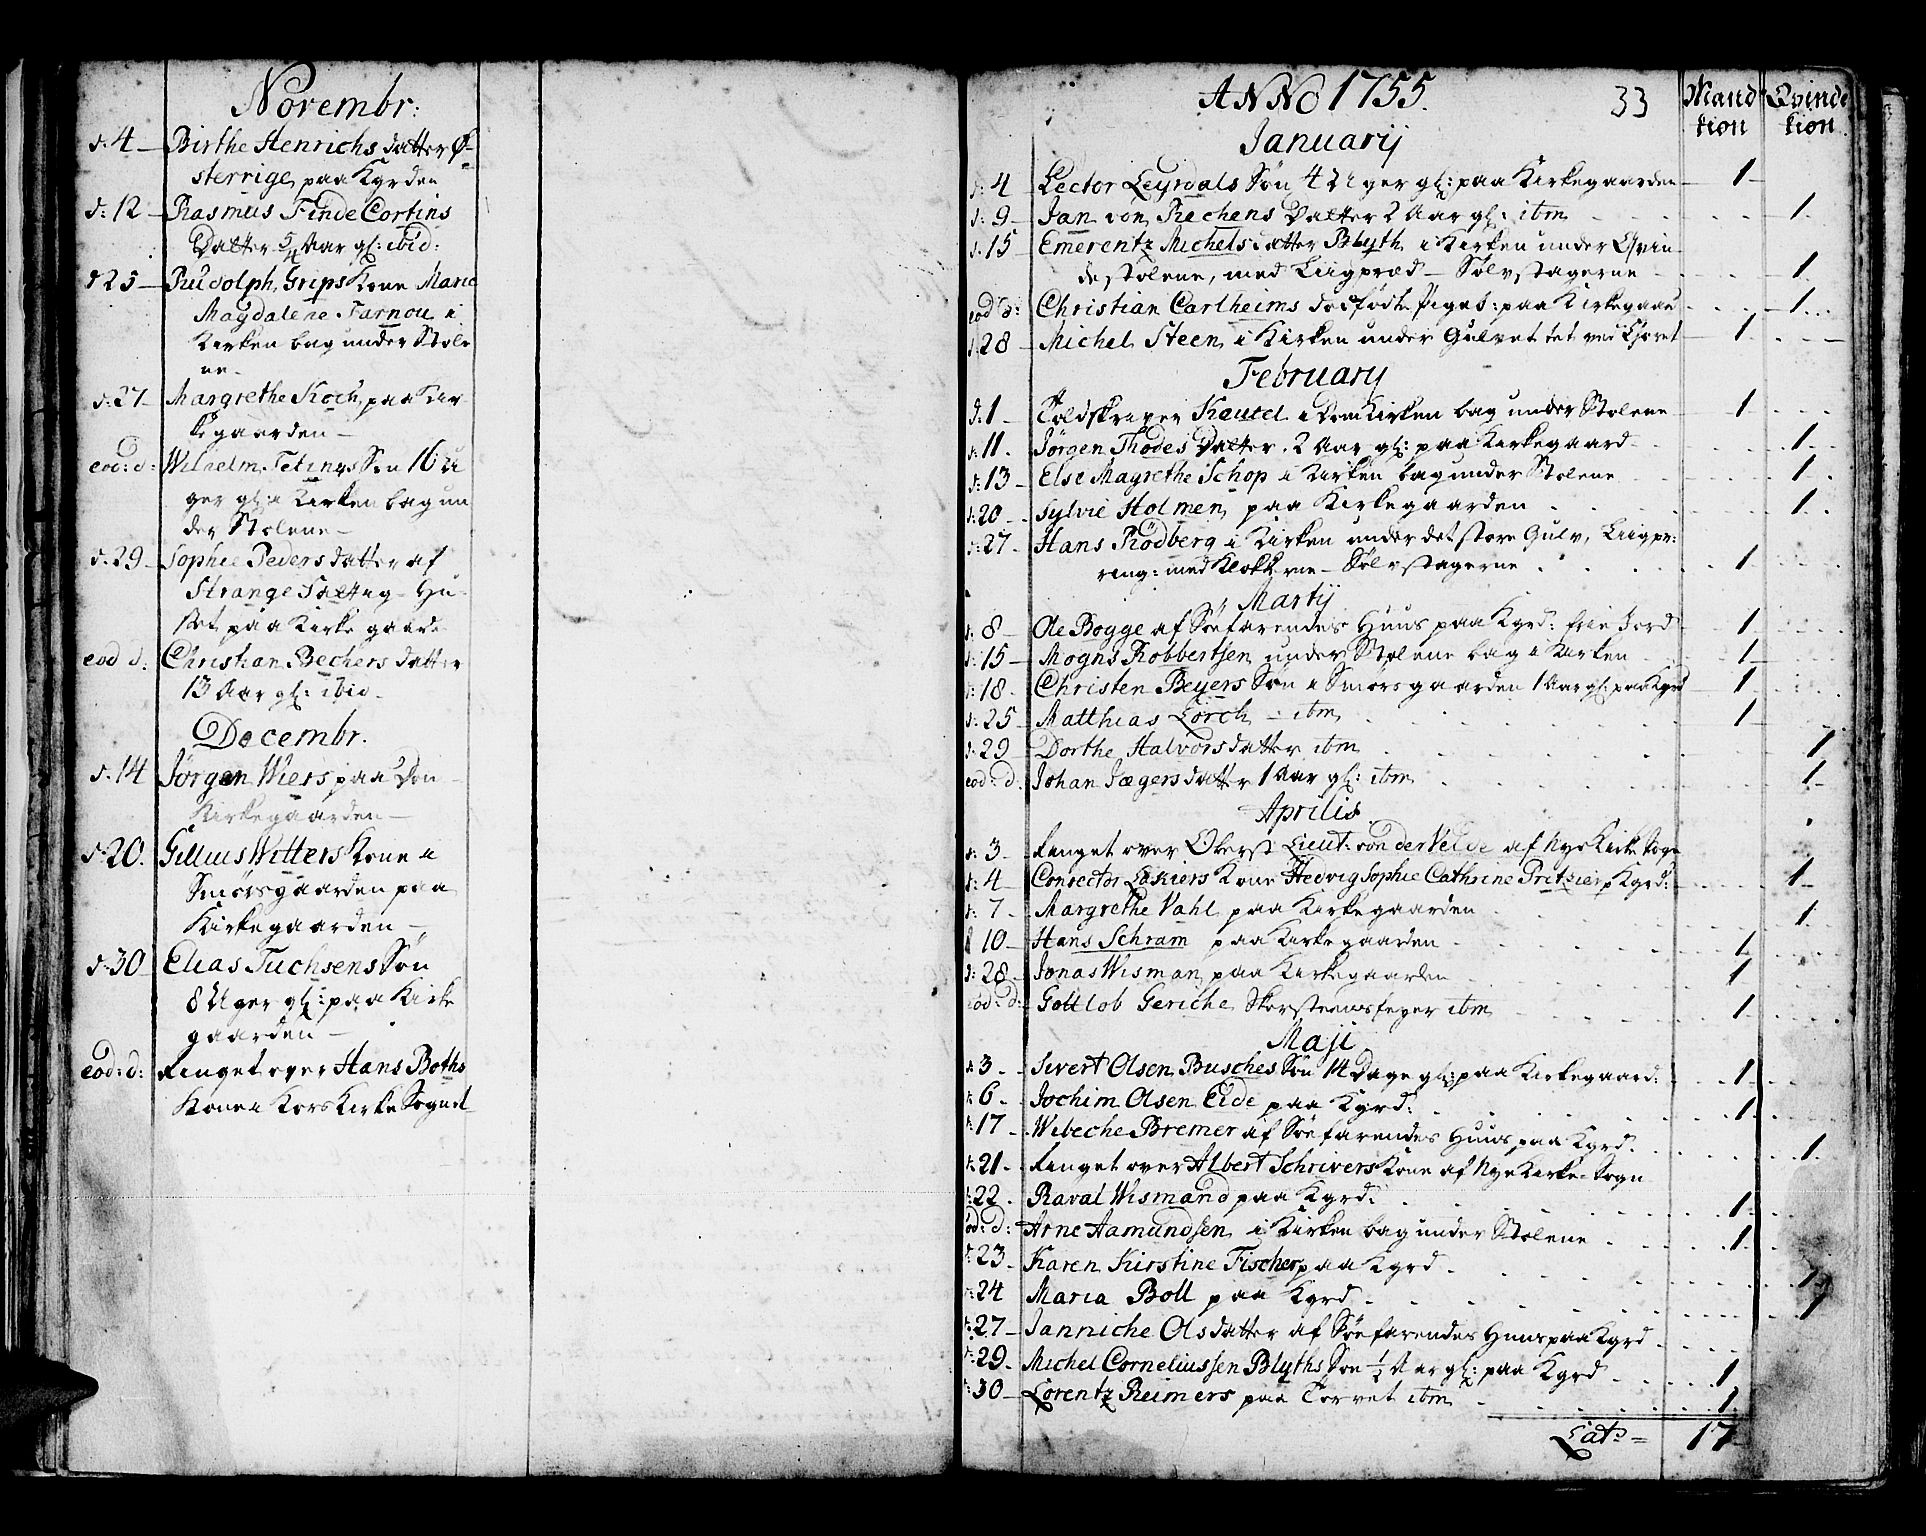 Novembr:
d: 4 Birthe Henrichsdatter Ø-
sterrige, paa Kgrden
d: 12 Rasmus Finde Cortins
Datter 5/4 Aar gl: ibid:
d 25 Rudolph Grips Kone Maria
Magdalene Farnou i
Kirken bag under Stole
ne.
d: 27 Margrethe Koch, paa Kir
kegaarden
eod: d: Wilhelm Tetings Søn 16 U
ger gl: i Kirken bag un
der Stolene
d: 29 Sophie Pedersdatter af
Strange Fattig Hu
set paa Kirkegaard
eod d: Christian Bechers datter
13 Aar gl: ibid.
Decembr.
d: 14 Jørgen Wiers paa Dom
Kirkegaarden
d: 20. Gillius Witters Kone i
Smørsgaarden paa
Kirkegaarden
d: 30 Elias Tuchsens Søn
8 Uger gl: paa Kirke
gaarden
eod: d: Ringet over Hans Boths
Kone i Kors Kirke Sognet
ANNO 1755. 33 Mand kion Qvinde kion
Januarij
d: 4 Lector Leyrdals Søn 4 Uger gl: paa Kirkegaarden 1
d: 9 Jan von Rechens Datter 2 Aar gl: ibm 1
d: 15 Emerentz Michelsdatter Blyth i Kirken under Qvin-
destolene, med Liigpræd Sølvstagerne 1
eod d: Christian Carlheims dødfødte Pigeb: paa Kirkegaard 1
d 28 Michel Steen i Kirken under Gulvet tet ved Choret 1
February
d: 1 Toldskriver Keutel i DomKirken bag under Stolene 1
d: 11. Jørgen Thodes Datter 2 Aar gl: paa Kirkegaard 1
d: 13 Else Magrethe Schop i Kirken bag under Stolene 1
d: 20 Sylvie Holmen paa Kirkegaarden 1
d: 27 Hans Rödberg i Kirken under det store Gulv, Liigpr:
ring: med Klokkerne Sølvstagerne 1
Martij
d: 8 Ole Bogge af Søefarendes Huus paa Kgrd: frie Jord 1
d: 15 Mogns Robbertsen under Stolene bag i Kirken 1
d: 18 Christen Beyers Søn i Smørsgaarden 1 Aar gl: paa Kgrd 1
d: 25 Matthias Lorch ibm 1
d: 29 Dorthe Halvorsdatter ibm 1
eod: d. Johan Jægersdatter 1 Aar gl: ibm 1
Aprilis
d: 3 Ringet over Oberst Lieut: von der Velde af Nye Kirke Sogn
d: 4 Conrector Laskiers Kone Hedvig Sophie Cathrine Pritzier p Kgrd: 1
d: 7 Margrethe Vahl paa Kirkegaarden 1
d 10 Hans Schram paa Kirkegaarden 1
d: 28 Jonas Wisman paa Kirkegaarden 1
eod: d: Gottlob Geriche Skorsteensfeyer ibm 1
Maji
d 3 Sivert Olsen Busches Søn 14 Dage gl: paa Kirkegaard: 1
d: 6 Jochim Olsen Eide paa Kgrd: 1
d: 17 Wibeche Bremer af Søefarendes Huus paa Kgrd. 1
d: 21 Ringet over Albert Schrivers Kone af Nye Kirke Sogn
d: 22 Raval Wismand paa Kgrd: 1
eod: d: Arne Aamundsen i Kirken bag under Stolene 1
d: 23 Karen Kirstine Fischer paa Kgrd 1
d: 24 Maria Boll paa Kgrd 1
d: 27 Janniche Olsdatter af Søefarendes Huus paa Kgrd
d: 29 Michel Corneliussen Blyths Søn 1/2 Aar gl: paa Kgrd 1
d: 30 Lorentz Reimers paa Torvet ibm 1
Lat: = 17